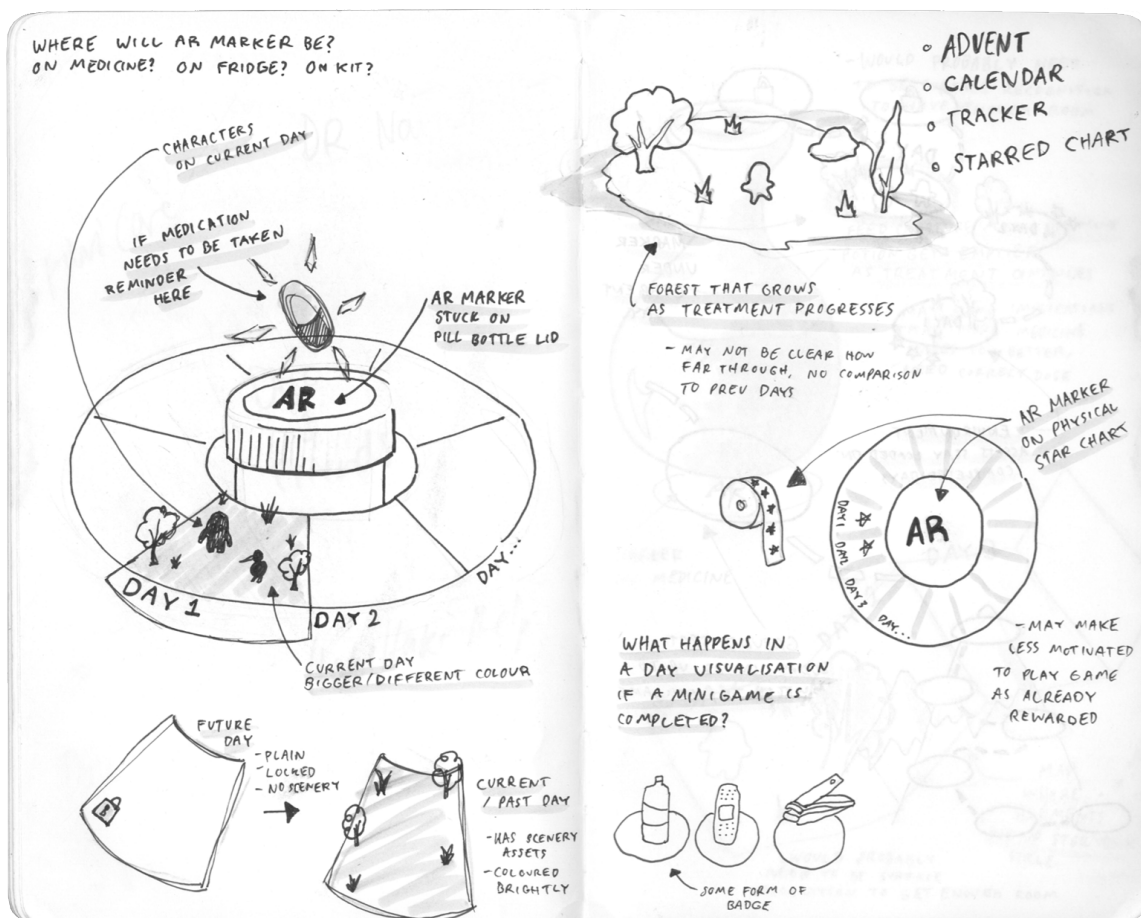 WHERE WILL AR MARKER BE?
ON MEDICINE? ON FRIDGE? ON KIT?
CHARACTERS
ON CURRENT DAY
IF MEDICATION
NEEDS TO BE TAKEN
REMINDER
HERE
AR MARKER
STUCK ON
PILL BOTTLE LID
AR
DAY 1
DAY 2
DAY...
CURRENT DAY
BIGGER/DIFFERENT COLOUR
FUTURE
DAY
- PLAIN
- LOCKED
- NO SCENERY
CURRENT
/ PAST DAY
- HAS SCENERY
ASSETS
- COLOURED
BRIGHTLY
ADVENT
CALENDAR
TRACKER
STARRED CHART
FOREST THAT GROWS
AS TREATMENT PROGRESSES
- MAY NOT BE CLEAR HOW
FAR THROUGH, NO COMPARISON
TO PREV DAYS
AR MARKER
ON PHYSICAL
STAR CHART
AR
DAY 1
DAY 2
DAY 3
DAY...
- MAY MAKE
LESS MOTIVATED
TO PLAY GAME
AS ALREADY
REWARDED
WHAT HAPPENS IN
A DAY VISUALISATION
IF A MINIGAME IS
COMPLETED?
SOME FORM OF
BADGE